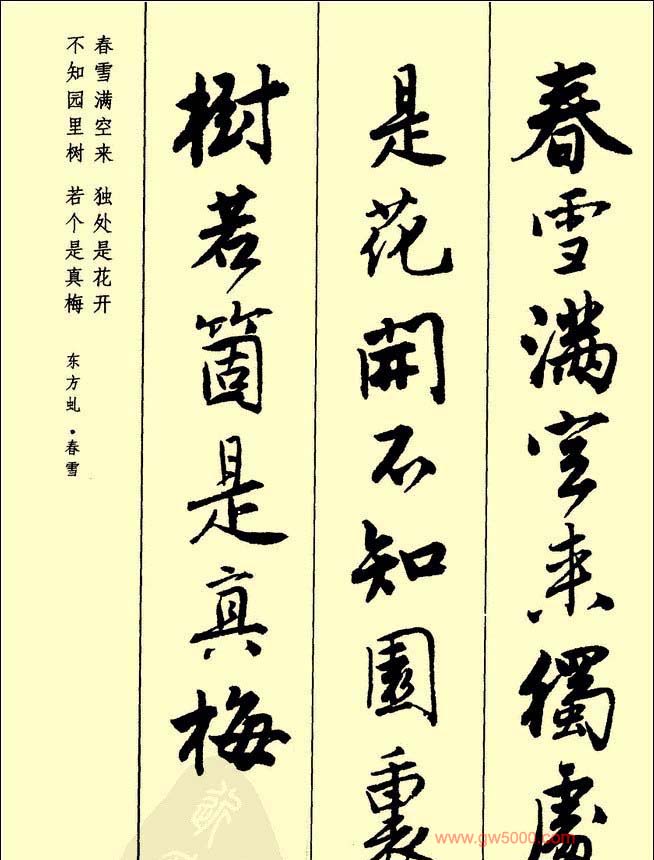 春雪滿空来獨處
是花開不知園裏
樹若箇是真梅
春雪满空来 独处是花开
不知园里树 若个是真梅
东方虬·春雪
www.gw5000.com